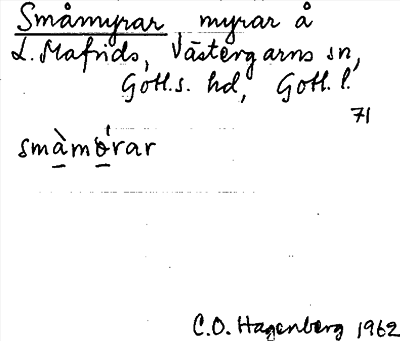 Småmyrar, myrar å
L. Mafrids, Västergarns sn,
Gotl.s. hd, Gotl. l.
71
småmörar
C.O. Hagenberg 1962